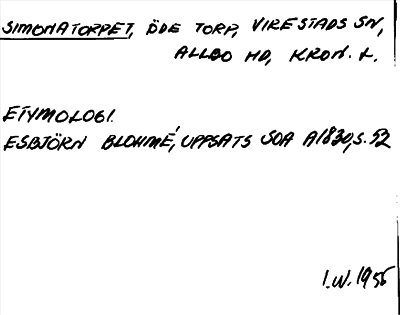 SIMONATORPET, ÖDE TORP, VIRESTADS SN,
ALLBO HD, KRON. L.
ETYMOLOGI.
ESBJÖRN BLOHMÉ, UPPSATS SOA A1830, S. 52
I.W. 1955